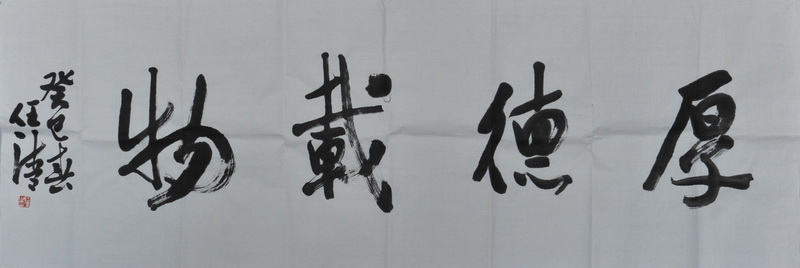 厚德載物
癸巳春
任清